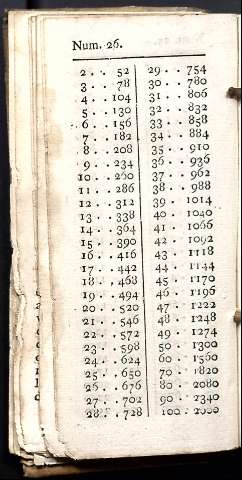 Num. 26.
2 . . 52
3 . . 78
4 . . 104
5 . . 130
6 . . 156
7 . . 182
8 . . 208
9 . . 234
10 . . 260
11 . . 286
12 . . 312
13 . . 338
14 . . 364
15 . . 390
16 . . 416
17 . . 442
18 . . 468
19 . . 494
20 . . 520
21 . . 546
22 . . 572
23 . . 598
24 . . 624
25 . . 650
26 . . 676
27 . . 702
28 . . 728
29 . . 754
30 . . 780
31 . . 806
32 . . 832
33 . . 858
34 . . 884
35 . . 910
36 . . 936
37 . . 962
38 . . 988
39 . . 1014
40 . . 1040
41 . . 1066
42 . . 1092
43 . . 1118
44 . . 1144
45 . . 1170
46 . . 1196
47 . . 1222
48 . . 1248
49 . . 1274
50 . . 1300
60 . . 1560
70 . . 1820
80 . . 2080
90 . . 2340
100 . . 2600